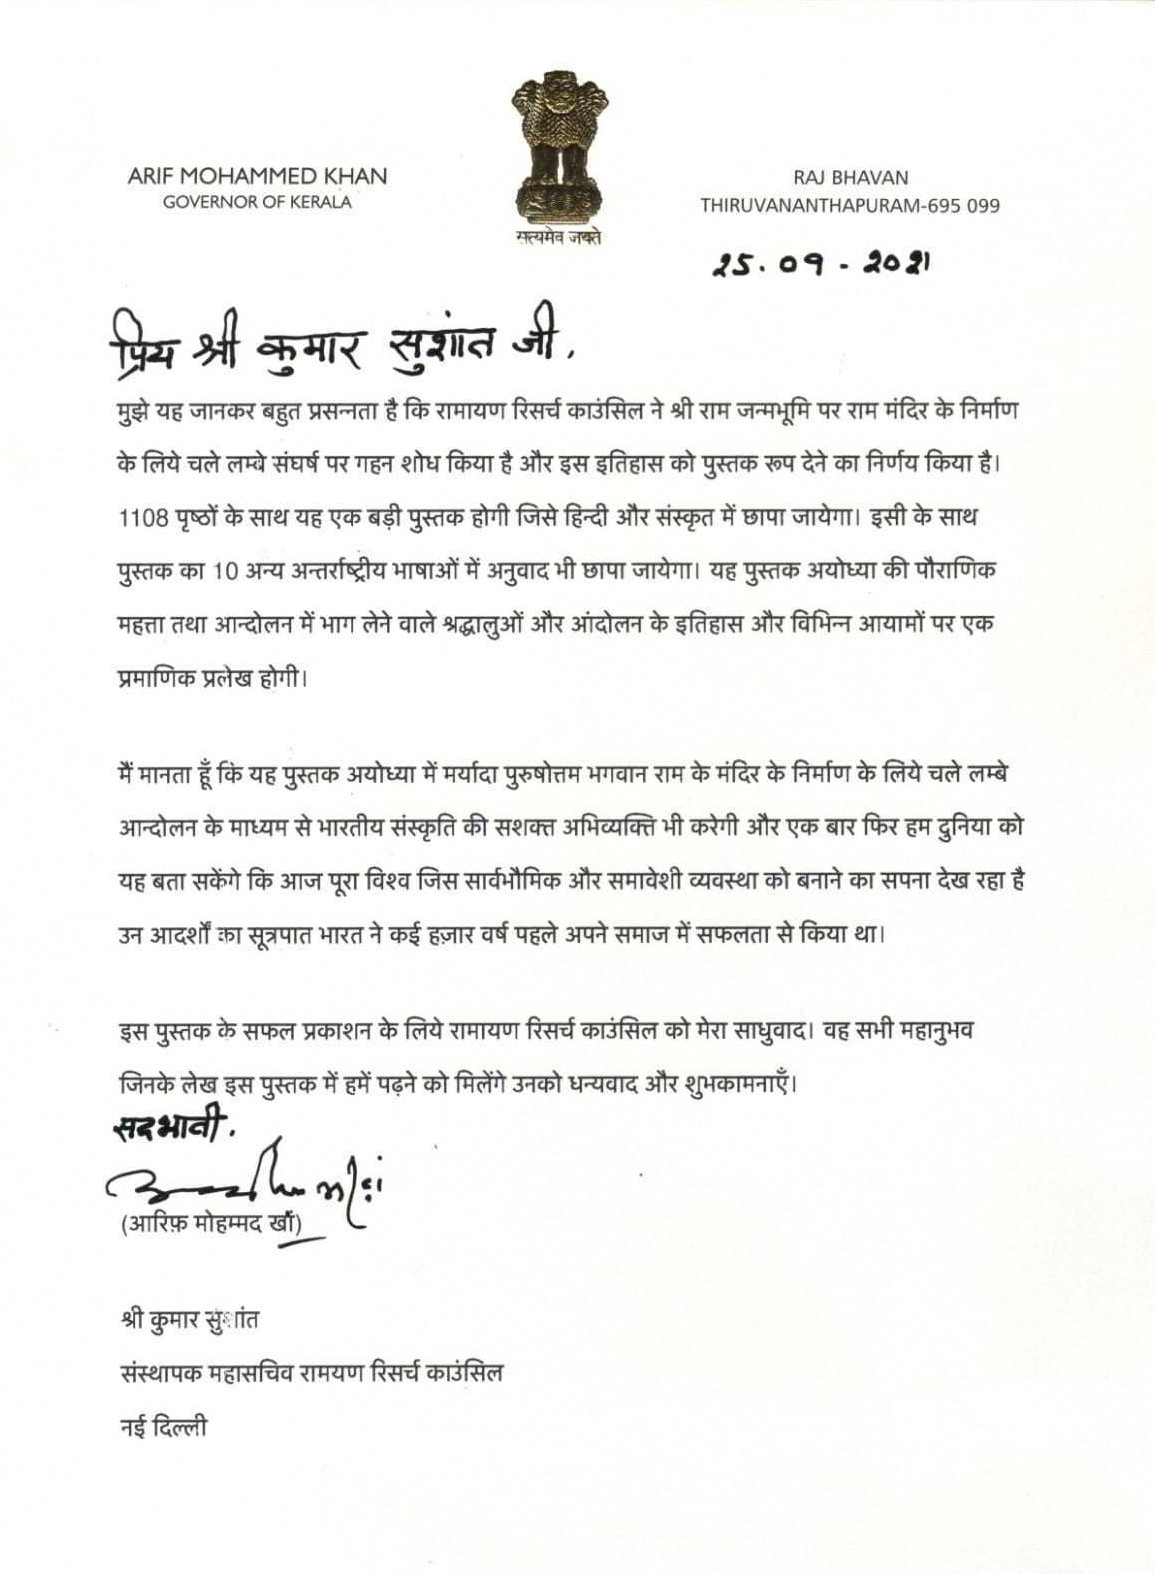 ARIF MOHAMMED KHAN
GOVERNOR OF KERALA
सत्यमेव जयते
RAJ BHAVAN
THIRUVANANTHAPURAM-695 099
25.09-2021
प्रिय श्री कुमार सुशांत जी,
मुझे यह जानकर बहुत प्रसन्नता है कि रामायण रिसर्च काउंसिल ने श्री राम जन्मभूमि पर राम मंदिर के निर्माण
के लिये चले लम्बे संघर्ष पर गहन शोध किया है और इस इतिहास को पुस्तक रूप देने का निर्णय किया है।
1108 पृष्ठों के साथ यह एक बड़ी पुस्तक होगी जिसे हिन्दी और संस्कृत में छापा जायेगा। इसी के साथ
पुस्तक का 10 अन्य अन्तर्राष्ट्रीय भाषाओं में अनुवाद भी छापा जायेगा। यह पुस्तक अयोध्या की पौराणिक
महत्ता तथा आन्दोलन में भाग लेने वाले श्रद्धालुओं और आंदोलन के इतिहास और विभिन्न आयामों पर एक
प्रमाणिक प्रलेख होगी।
मैं मानता हूँ कि यह पुस्तक अयोध्या में मर्यादा पुरुषोत्तम भगवान राम के मंदिर के निर्माण के लिये चले लम्बे
आन्दोलन के माध्यम से भारतीय संस्कृति की सशक्त अभिव्यक्ति भी करेगी और एक बार फिर हम दुनिया को
यह बता सकेंगे कि आज पूरा विश्व जिस सार्वभौमिक और समावेशी व्यवस्था को बनाने का सपना देख रहा है
उन आदर्शों का सूत्रपात भारत ने कई हज़ार वर्ष पहले अपने समाज में सफलता से किया था।
इस पुस्तक के सफल प्रकाशन के लिये रामायण रिसर्च काउंसिल को मेरा साधुवाद। वह सभी महानुभव
जिनके लेख इस पुस्तक में हमें पढ़ने को मिलेंगे उनको धन्यवाद और शुभकामनाएँ।
सदभावी.
(आरिफ़ मोहम्मद खाँ)
श्री कुमार सुशांत
संस्थापक महासचिव रामयण रिसर्च काउंसिल
नई दिल्ली